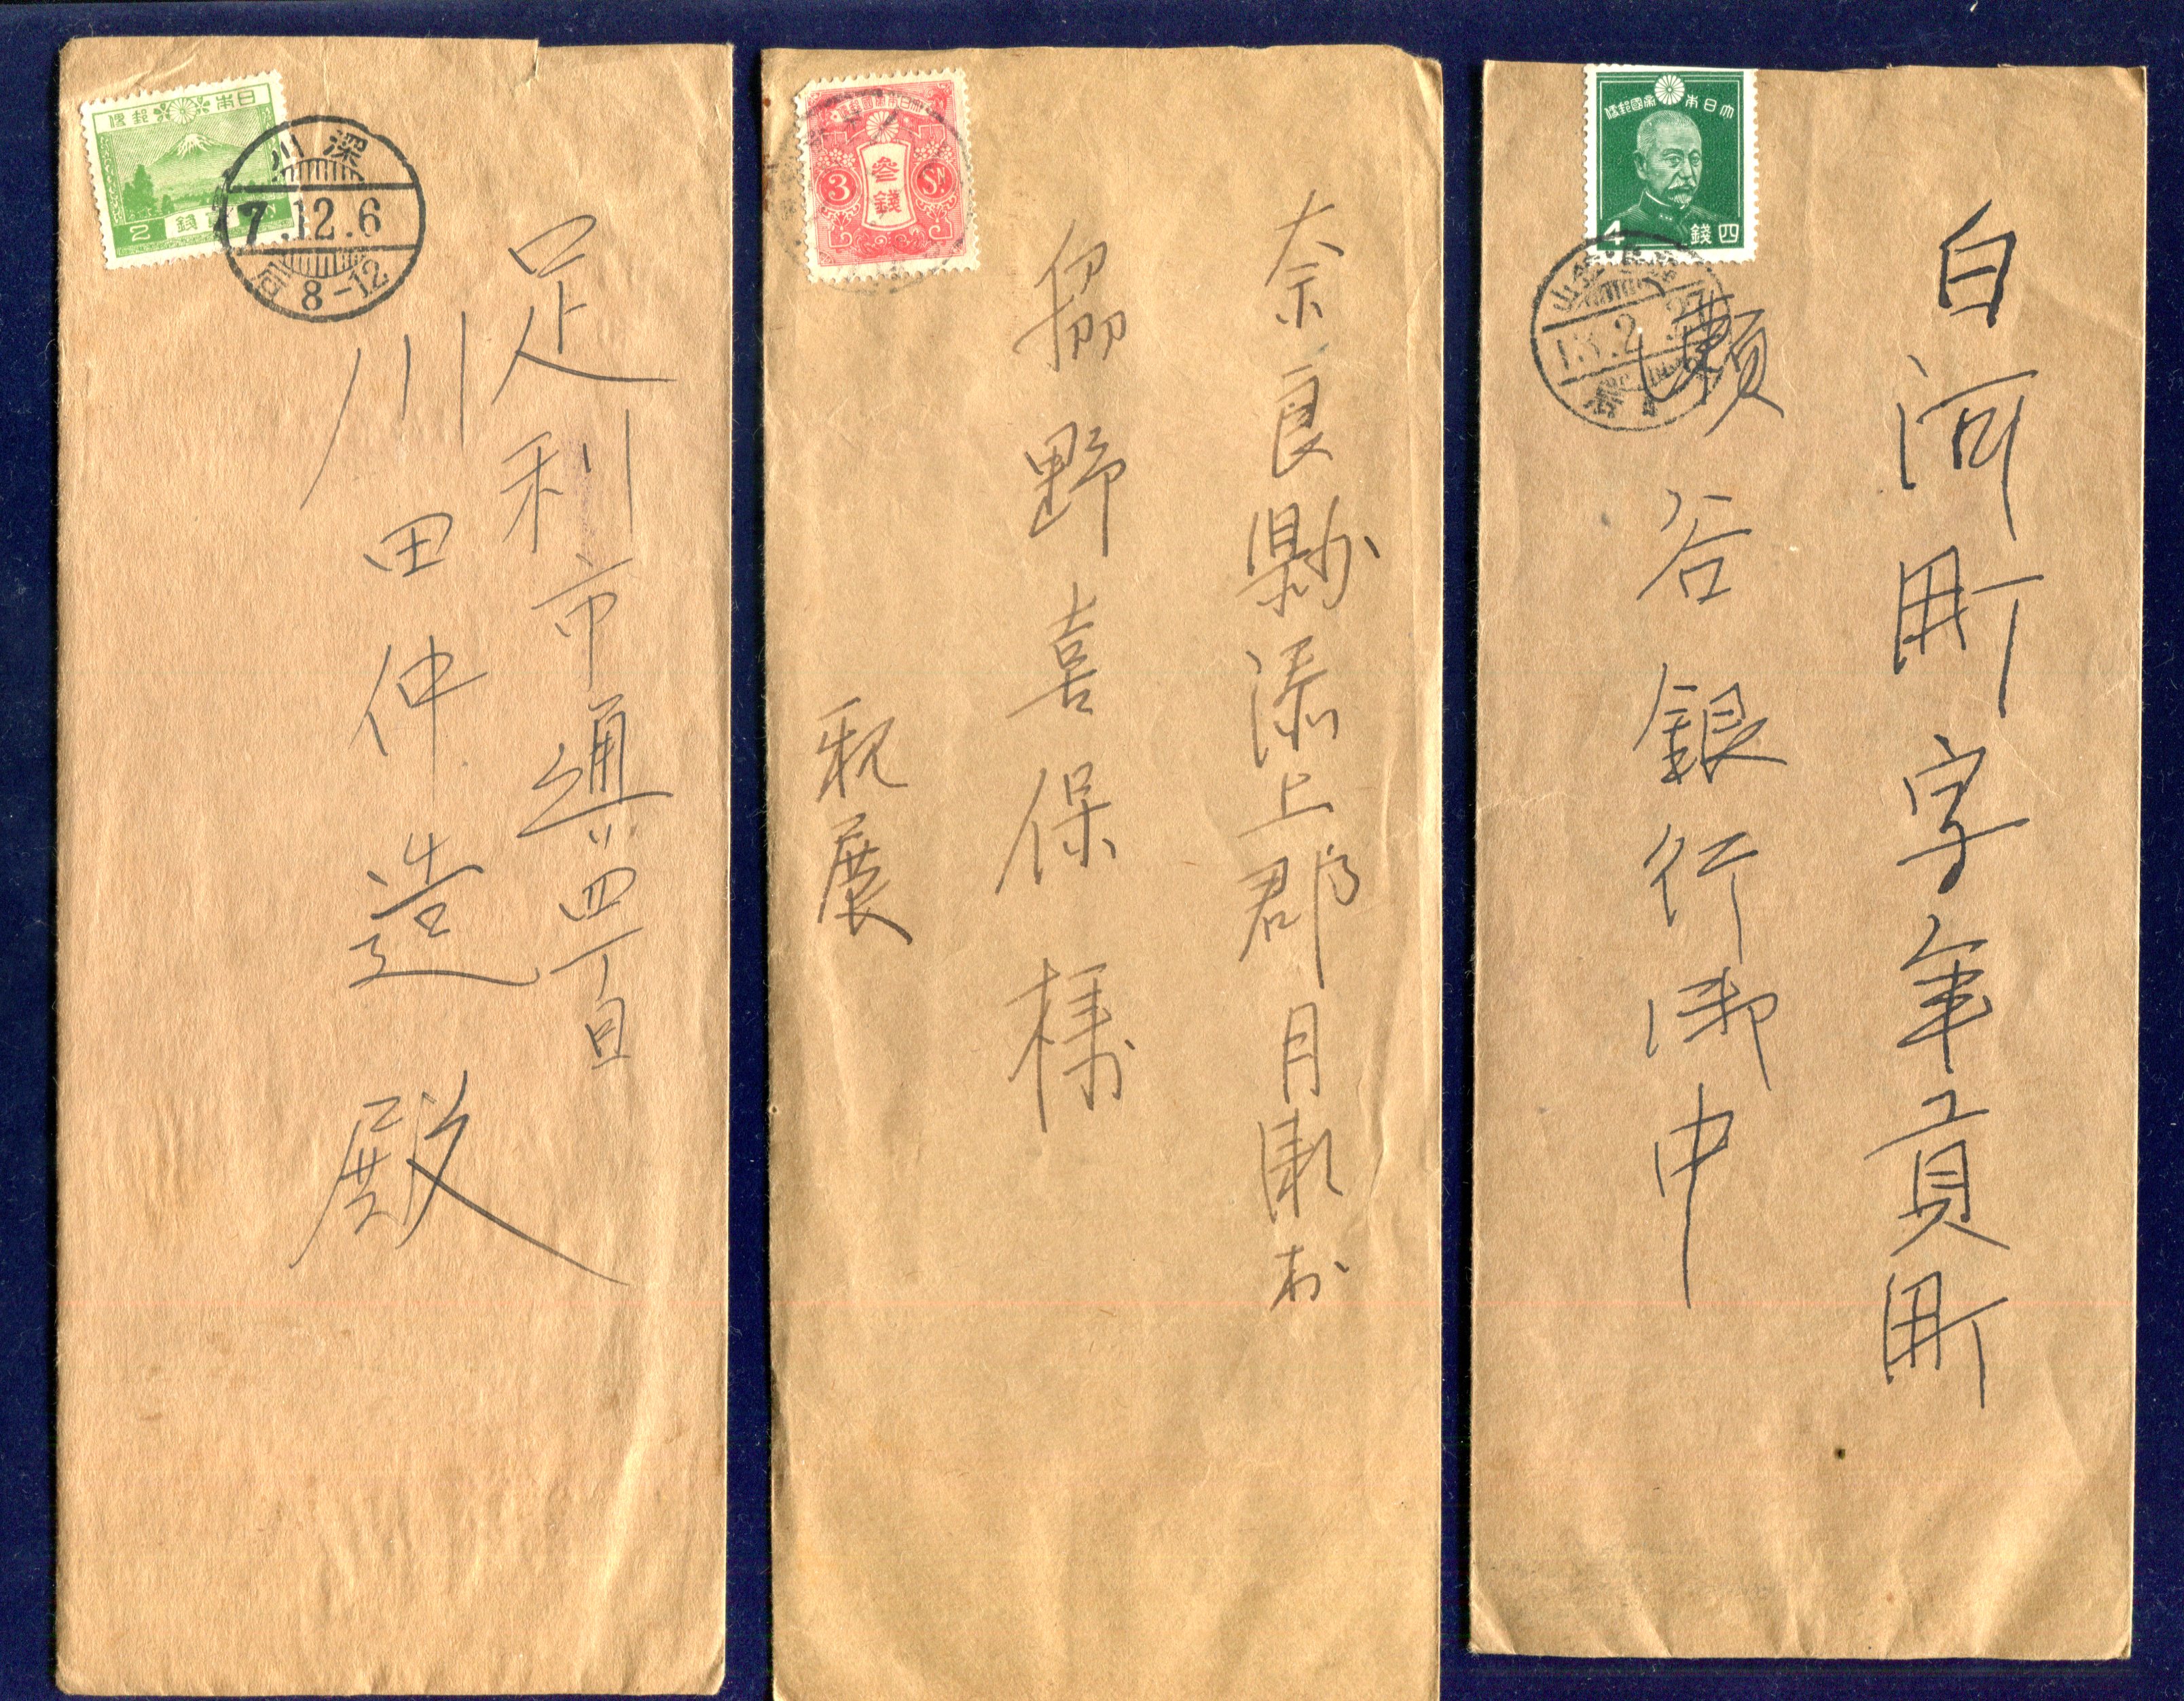 日本郵便
2 錢
深川
7.12.6
局 8-12
足利市通四丁目
川田仲造殿
大日本帝國郵便
3 参錢 Sn.
奈良縣添上郡月瀬村
脇野喜保様
親展
大日本帝國郵便
4 錢四
13.2.27
白河町字年貢町
瀬谷銀行御中